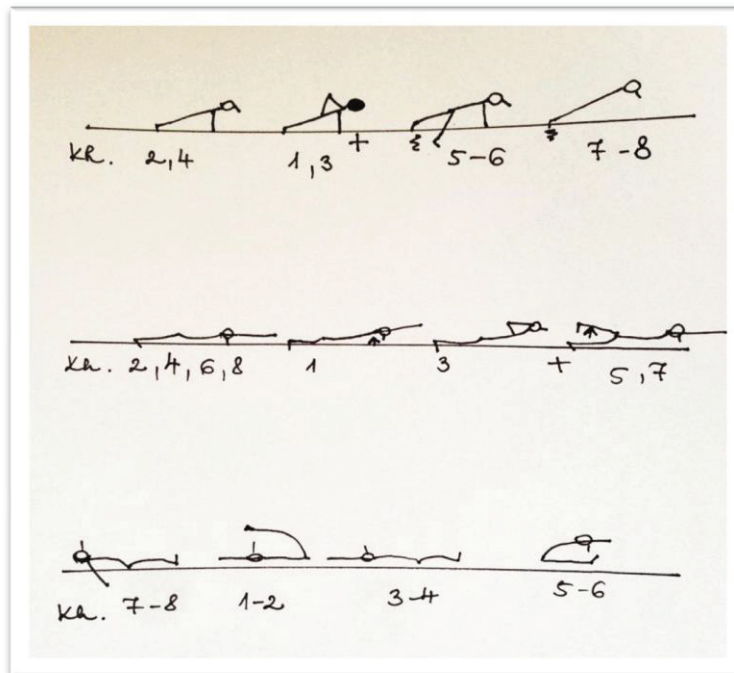 KR. 2,4 1,3 + 5-6 7-8
Kh. 2,4,6,8 1 3 + 5,7
Kh. 7-8 1-2 3-4 5-6